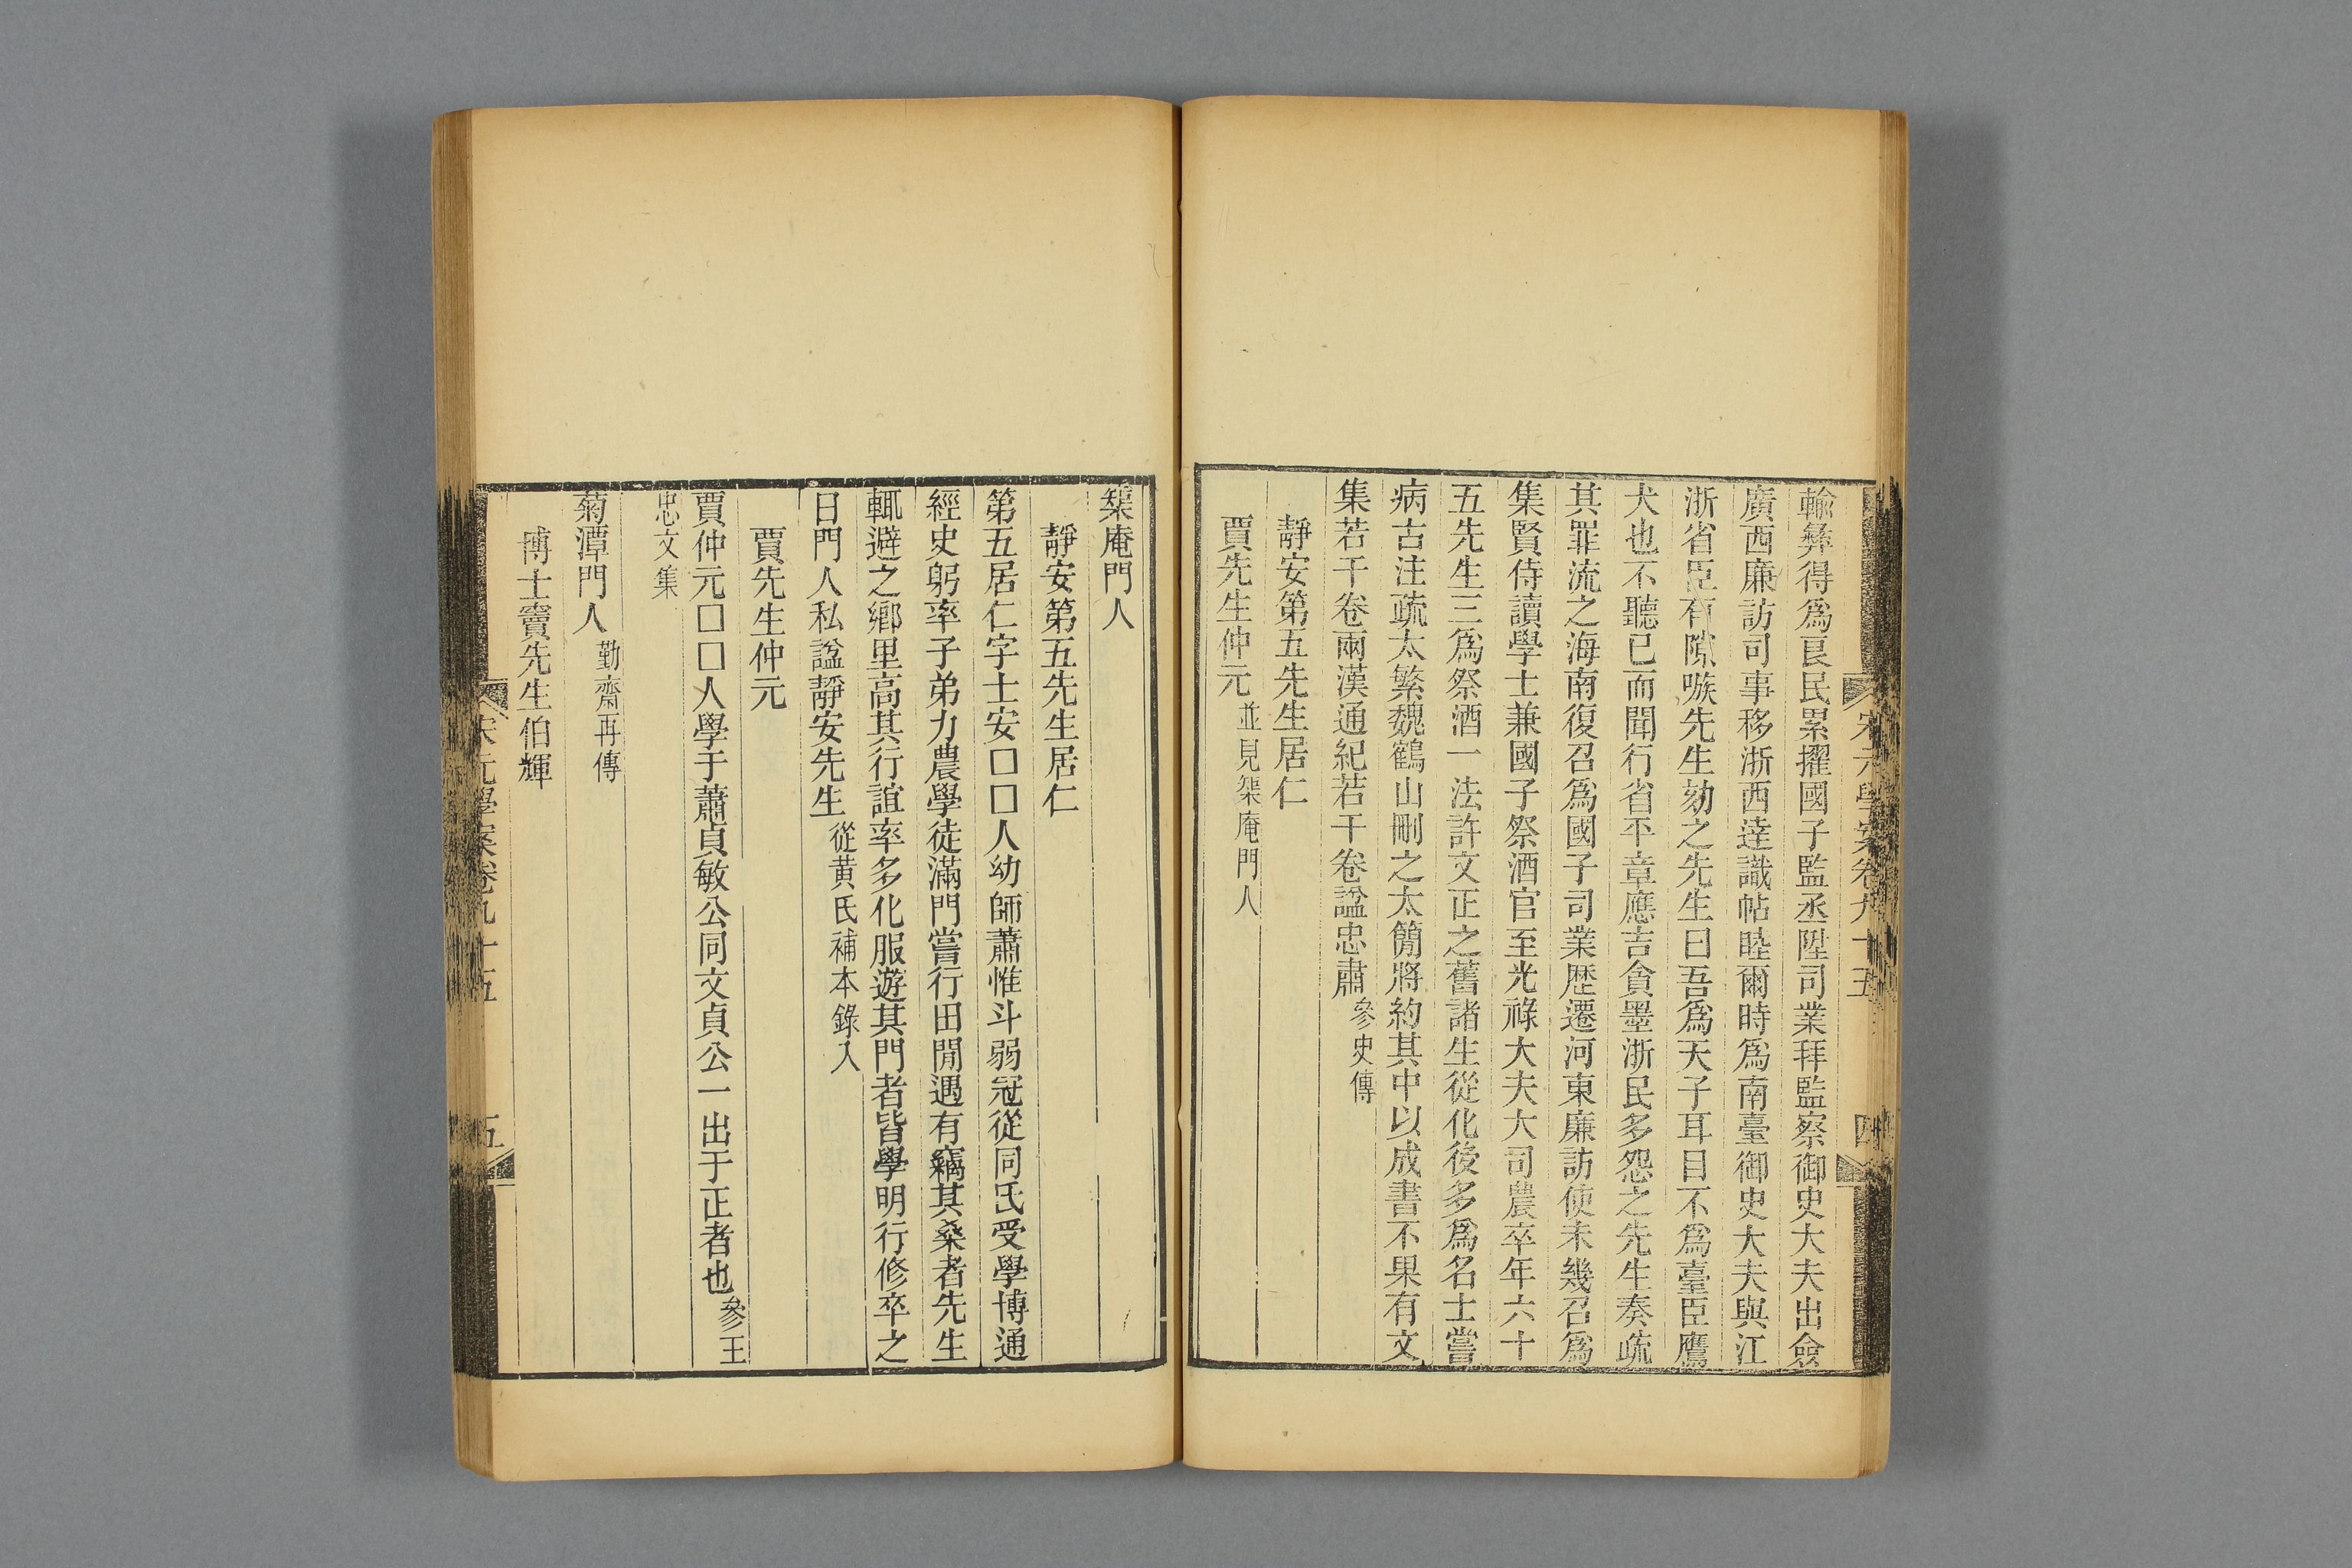 宋元學案卷九十五
四
輸彝得爲良民累擢國子監丞陞司業拜監察御史大夫出僉
廣西廉訪司事移浙西達識帖睦爾時爲南臺御史大夫與江
浙省臣有隙嗾先生劾之先生曰吾爲天子耳目不爲臺臣鷹
犬也不聽已而聞行省平章應吉貪墨浙民多怨之先生奏疏
其罪流之海南復召爲國子司業歷遷河東廉訪使未幾召爲
集賢侍讀學士兼國子祭酒官至光祿大夫大司農卒年六十
五先生三爲祭酒一法許文正之舊諸生從化後多爲名士嘗
病古注疏太繁魏鶴山刪之太簡將約其中以成書不果有文
集若干卷兩漢通紀若干卷諡忠肅參史傳
靜安第五先生居仁
賈先生仲元並見榘庵門人
榘庵門人
靜安第五先生居仁
第五居仁字士安□□人幼師蕭惟斗弱冠從同氏受學博通
經史躬率子弟力農學徒滿門嘗行田閒遇有竊其桑者先生
輒避之鄉里高其行誼率多化服遊其門者皆學明行修卒之
日門人私諡靜安先生從黃氏補本錄入
賈先生仲元
賈仲元□□人學于蕭貞敏公同文貞公一出于正者也參王
忠文集
菊潭門人勤齋再傳
博士竇先生伯輝
宋元學案卷九十五
五